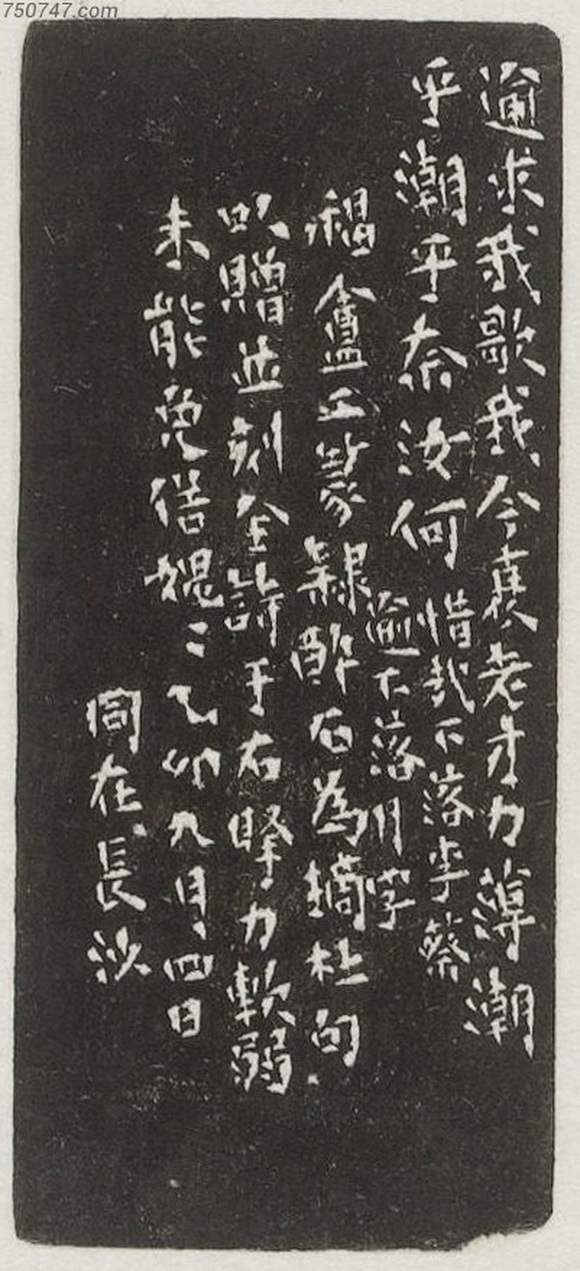 750747.com
逾求我歌我今衰老才力薄潮
乎潮乎奈汝何
惜哉下落李蔡
逾下落月字
福盦工篆隸酔石為摘杜句
以贈並刻全詩于右力軟弱
未能免俗媿〻乙卯九月四日
同在長沙